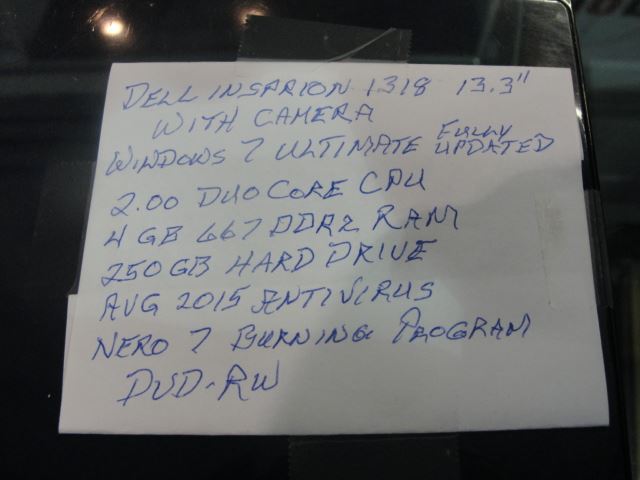 DELL INSPRION 1318 13.3"
WITH CAMERA
WINDOWS 7 ULTIMATE FULLY UPDATED
2.00 DUO CORE CPU
4 GB 667 DDR2 RAM
250 GB HARD DRIVE
AVG 2015 ANTIVIRUS
NERO 7 BURNING PROGRAM
DVD-RW